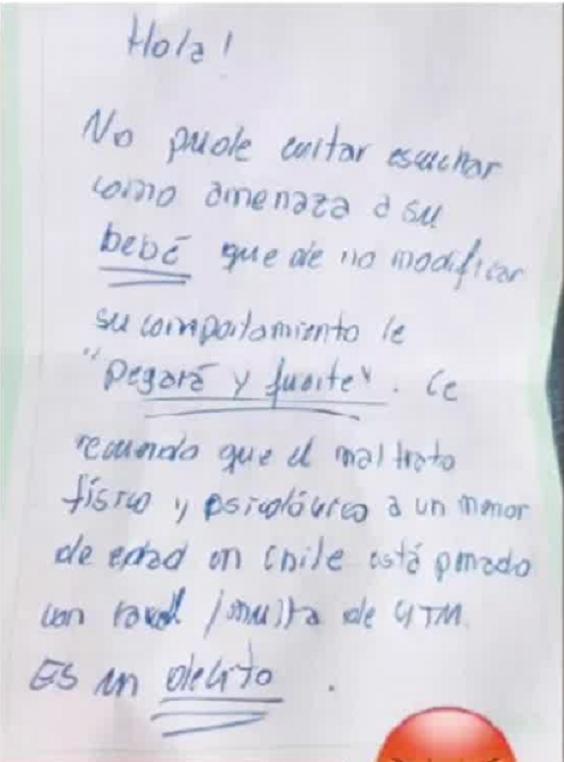 Hola!
No pude evitar escuchar
como amenaza a su
bebé que de no modificar
su comportamiento le
"pegará y fuerte". Le
recuerdo que el maltrato
físico y psicológico a un menor
de edad en Chile está penado
con /multa de UTM.
ES un delito.